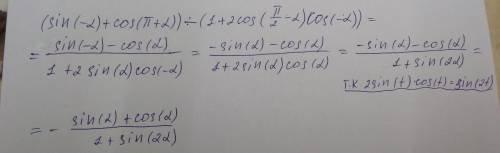 (sin(-α)+cos(π+α))÷(1+2cos(π/2-α)cos(-α))=
= (sin(-α)-cos(α))/(1+2sin(α)cos(-α)) = (-sin(α)-cos(α))/(1+2sin(α)cos(α)) = (-sin(α)-cos(α))/(1+sin(2α)) =
т.к. 2sin(t)·cos(t)=sin(2t)
= - (sin(α)+cos(α))/(1+sin(2α))